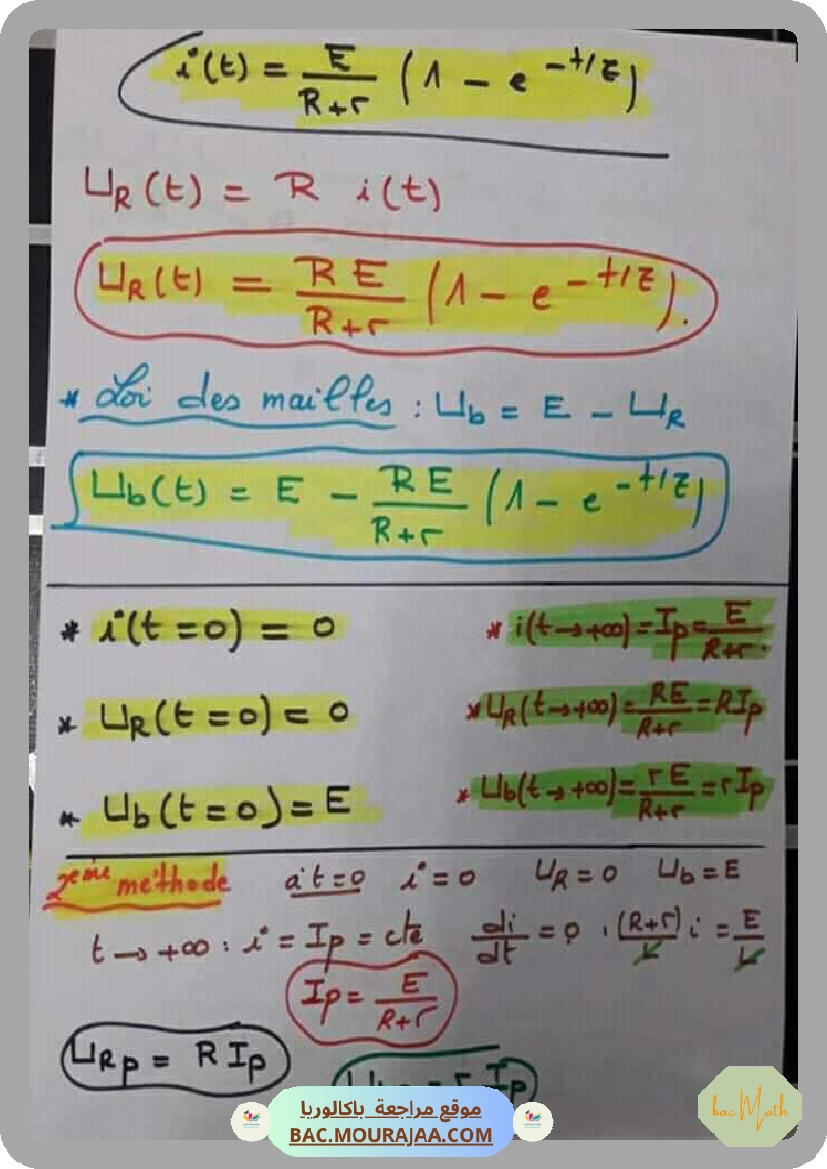 i(t) = E/(R+r) (1 - e^-t/τ)
U_R(t) = R i(t)
U_R(t) = RE/(R+r) (1 - e^-t/τ).
* Loi des mailles : U_b = E - U_R
U_b(t) = E - RE/(R+r) (1 - e^-t/τ)
* i(t=0) = 0
* i(t→+∞) = Ip = E/(R+r).
* U_R(t=0) = 0
* U_R(t→+∞) = RE/(R+r) = RIp
* U_b(t=0) = E
* U_b(t→+∞) = rE/(R+r) = rIp
2eme méthode à t=0 i=0 U_R=0 U_b=E
t→+∞ : i = Ip = cte di/dt = 0 , (R+r)/L i = E/L
Ip = E/(R+r)
U_Rp = R Ip
= r Ip
موقع مراجعة باكالوريا
BAC.MOURAJAA.COM
bac Math